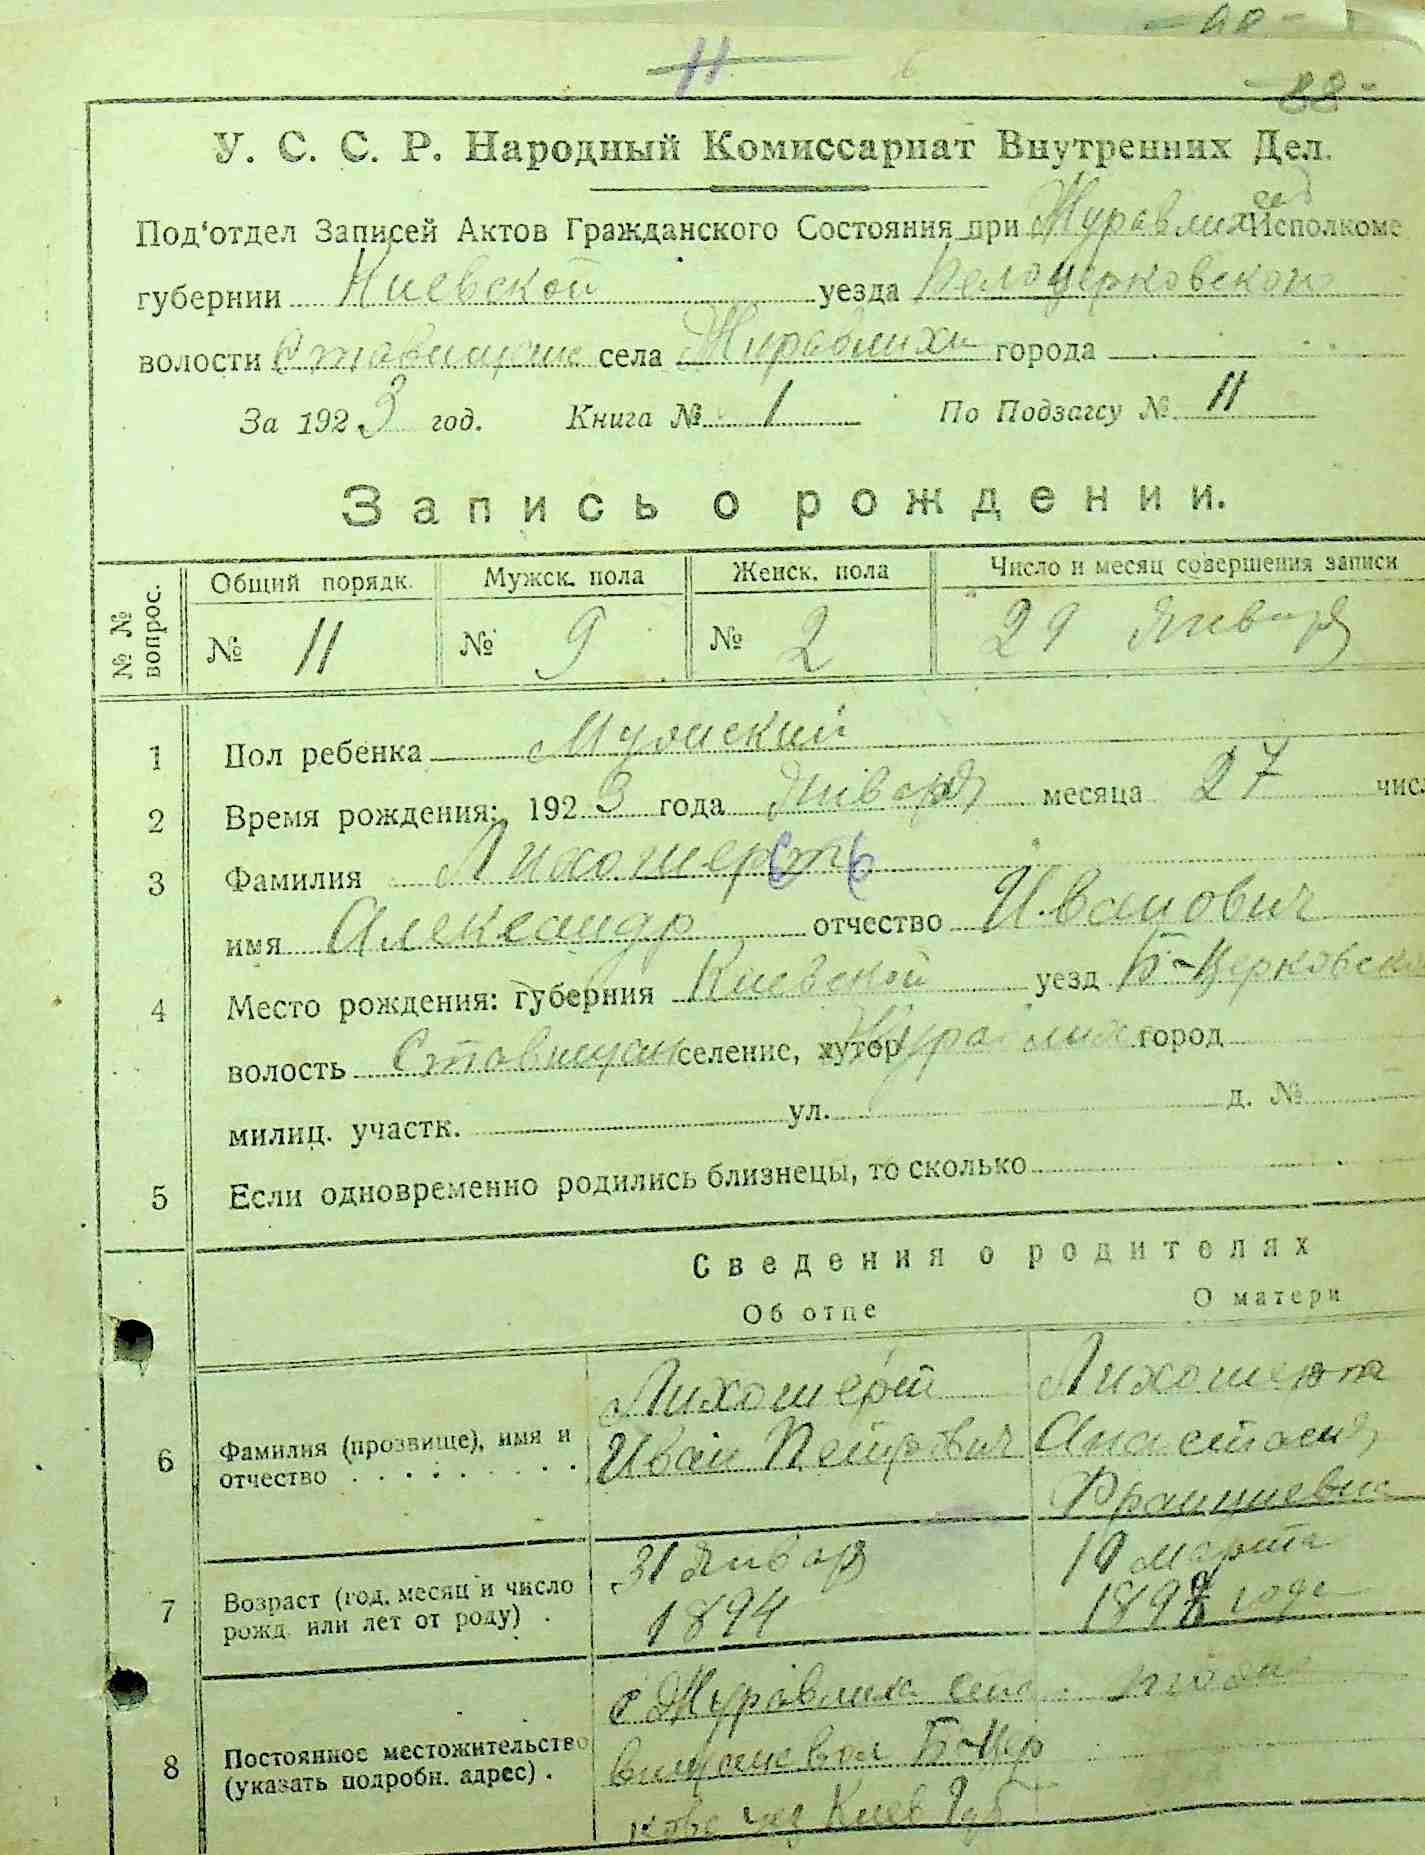 11
88
У. С. С. Р. Народный Комиссариат Внутренних Дел.
Под'отдел Записей Актов Гражданского Состояния при Журавлих Исполкоме
губернии Киевской уезда Белоцерковского
волости Ставищан села Журавлихи города
За 1923 год. Книга № 1 По Подзагсу № 11
Запись о рождении.
№№ вопрос. Общий порядк. Мужск. пола Женск. пола Число и месяц совершения записи
№ 11 № 9 № 2 29 Января
1 Пол ребенка Мужский
2 Время рождения: 1923 года Января месяца 27 чис.
3 Фамилия Лихошерсть
имя Александр отчество Иванович
4 Место рождения: губерния Киевской уезд Б-Церковско
волость Ставищан селение, хутор Журавлиха город
милиц. участк. ул. д. №
5 Если одновременно родились близнецы, то сколько
Сведения о родителях
Об отце О матери
Лихошерт Лихошерта
6 Фамилия (прозвище), имя и отчество Иван Петрович Анастасия
Францевна
7 Возраст (год, месяц и число рожд. или лет от роду) . 31 Января 19 марта
1894 1898 года
8 Постоянное местожительство (указать подробн. адрес) . с Журавлиха Ста
вищанс вол Б-Цер
ков уезд Киев Губ